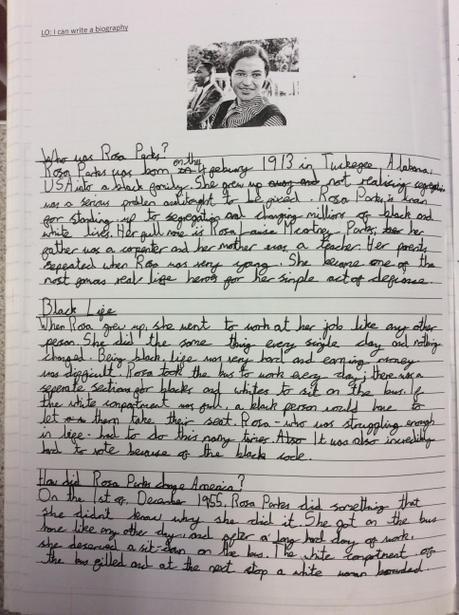 LO: I can write a biography
Who was Rosa Parks?
on the
Rosa Parks was born 4 febuary 1913 in Tuskegee Alabama,
USA into a black family. She grew up not realising segregation
was a serious problem and ought to be fixed. Rosa Parks is known
for standing up to segregation and changing millions of black and
white lives. Her full name is Rosa Louise Mcartney Parks, her
father was a carpenter and her mother was a teacher. Her parents
seperated when Rosa was very young. She became one of the
most famous real life heros for her simple act of defiance.
Black Life
When Rosa grew up, she went to work at her job like any other
person. She did the same thing every single day and nothing
changed. Being black, life was very hard and earning money
was difficult. Rosa took the bus to work every day; there was a
seperate sections for blacks and whites to sit on the bus. If
the white compartment was full, a black person would have to
let them take their seat. Rosa - who was struggling enough
in life - had to do this many times. It was also incredibly
hard to vote because of the black code.
How did Rosa Parks change America?
On the 1st of December 1955, Rosa Parks did something that
she didn't know why she did it. She got on the bus
home like any other day and after a long hard day of work,
she deserved a sit-down on the bus. The white compartment of
the bus filled and at the next stop a white woman boarded